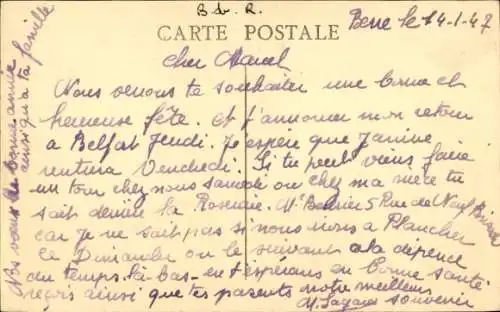 B. d. R.
Berre le 14-1-47
CARTE POSTALE
Cher Marcel
Nous venons te souhaiter une bonne et
heureuse fête. et j'annonce mon retour
a Belfort Jeudi. Je espère que Janine
rentrera Vendredi. Si tu peut viens faire
un tour chez nous samedi ou chez ma mère tu
sait derière la Roseraie. 5 Rue de Neuf Brisach
car je ne sait pas si nous irons a Plancher
ce Dimanche ou le suivant cela dépend
du temps là bas. en t'espérans en bonne santé
reçois ainsi que tes parents notre meilleurs
souvenir
Nos vœux de bonne année
ainsi qu'a ta famille